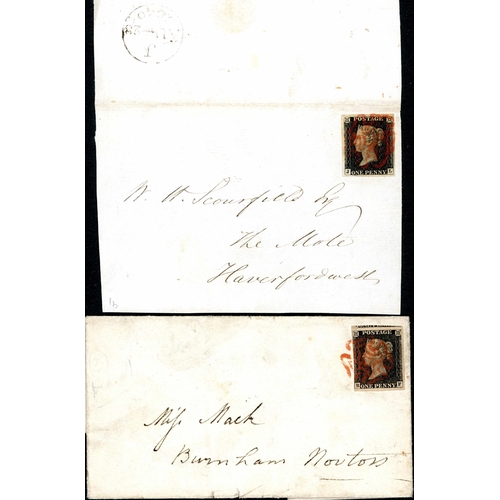 POSTAGE
ONE PENNY
W. H. Scourfield Esq
The Mote
Haverfordwest
1b
POSTAGE
ONE PENNY
Miss Mack
Burnham Norton